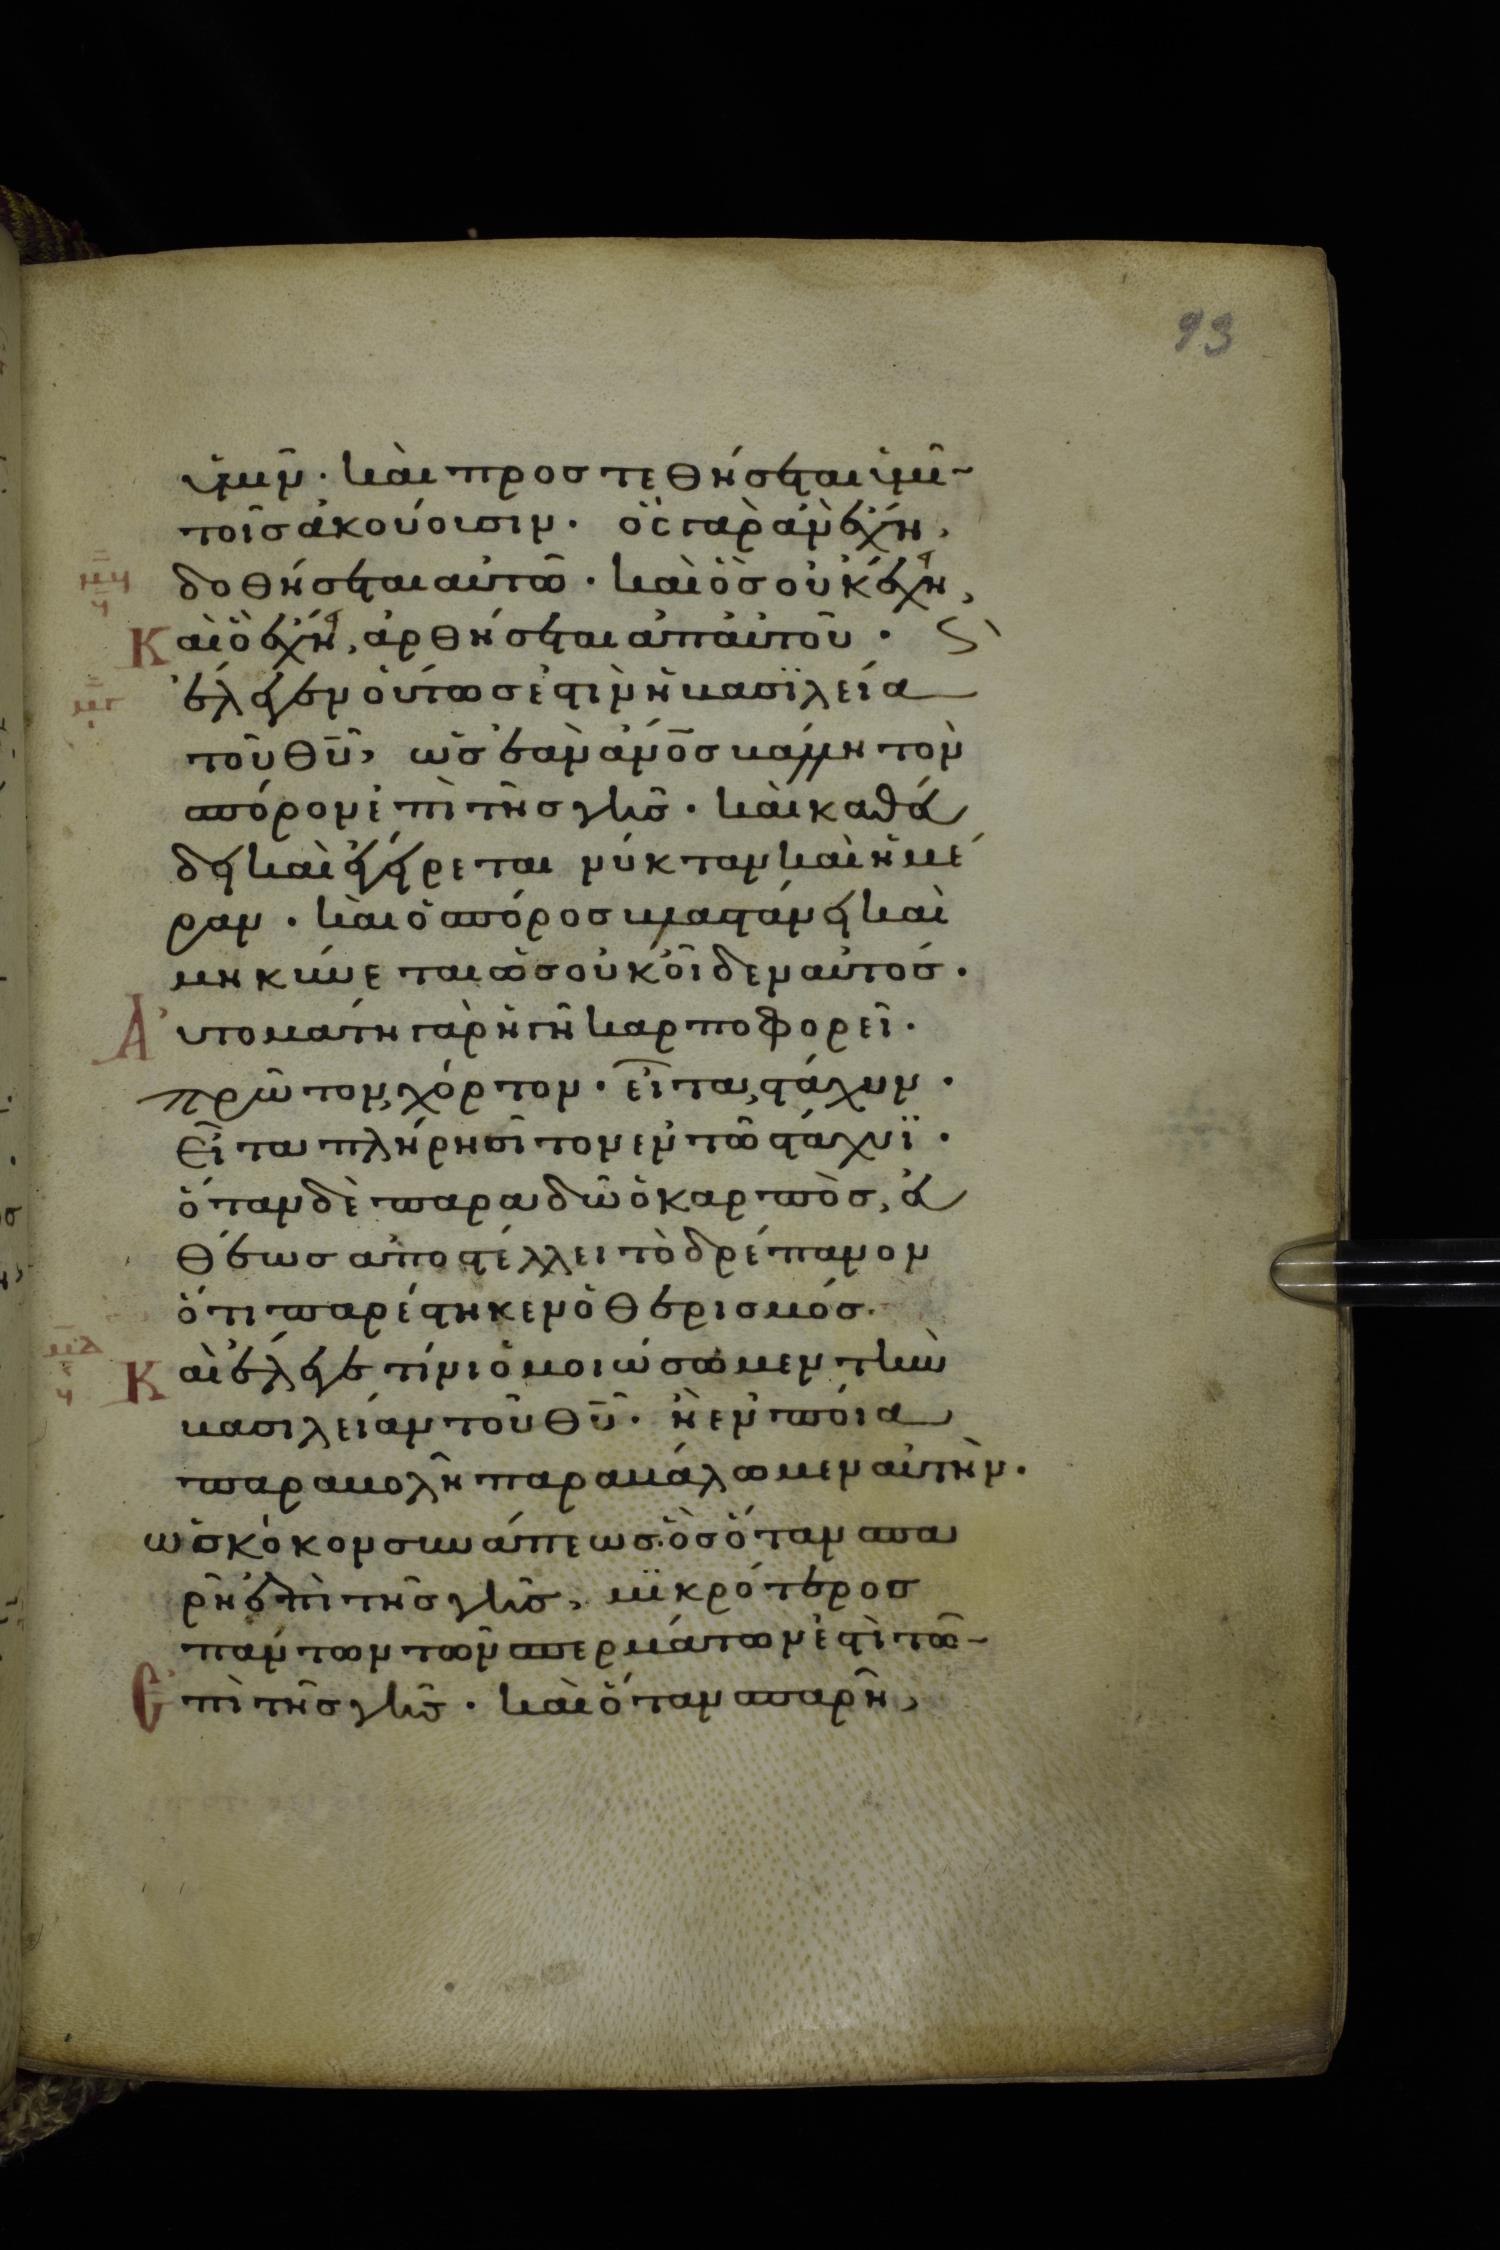 93
ὑμῖν · καὶ προστεθήσεται ὑμῖ-
τοῖς ἀκούουσιν · ὃς γὰρ ἂν ἔχη,
δοθήσεται αὐτῶ · καὶ ὃς οὐκ ἔχει,
Καὶ ὃ ἔχει, ἀρθήσεται ἀπ' αὐτοῦ ·
ἔλεγεν οὕτως ἐστὶν ἡ βασϊλεία
τοῦ θῦ, ὡς ἐὰν ἄνος βάλλη τὸν
σπόρον ἐπὶ τῆς γῆς · καὶ καθεύ
δει καὶ ἐγείρεται νύκταν καὶ ἡμέ
ραν · καὶ ὁ σπόρος βλαστάνει καὶ
μηκύνεται ὡς οὐκ οἶδεν αὐτός ·
Αὐτομάτη γὰρ ἡ γῆ καρποφορεῖ ·
πρῶτον, χόρτον · εἶτα, στάχυν ·
εἶτα πλήρη σῖτον ἐν τῶ στάχυϊ ·
ὅταν δὲ παραδῶ ὁ καρπὸς, εὐ
θέως ἀποστέλλει τὸ δρέπανον
ὅτι παρέστηκεν ὁ θερισμός ·
Καὶ ἔλεγε τίνι ὁμοιώσωμεν τὴν
βασιλείαν τοῦ θῦ · ἢ ἐν ποία
παραβολῆ παραβάλωμεν αὐτὴν ·
ὡς κόκον σινάπεως · ὃς ὅταν σπα
ρῆ ἐπὶ τῆς γῆς, μϊκρότερος
πάντων τῶν σπερμάτων ἐστὶ τῶ-
Ἐπὶ τῆς γῆς · καὶ ὅταν σπαρῆ,